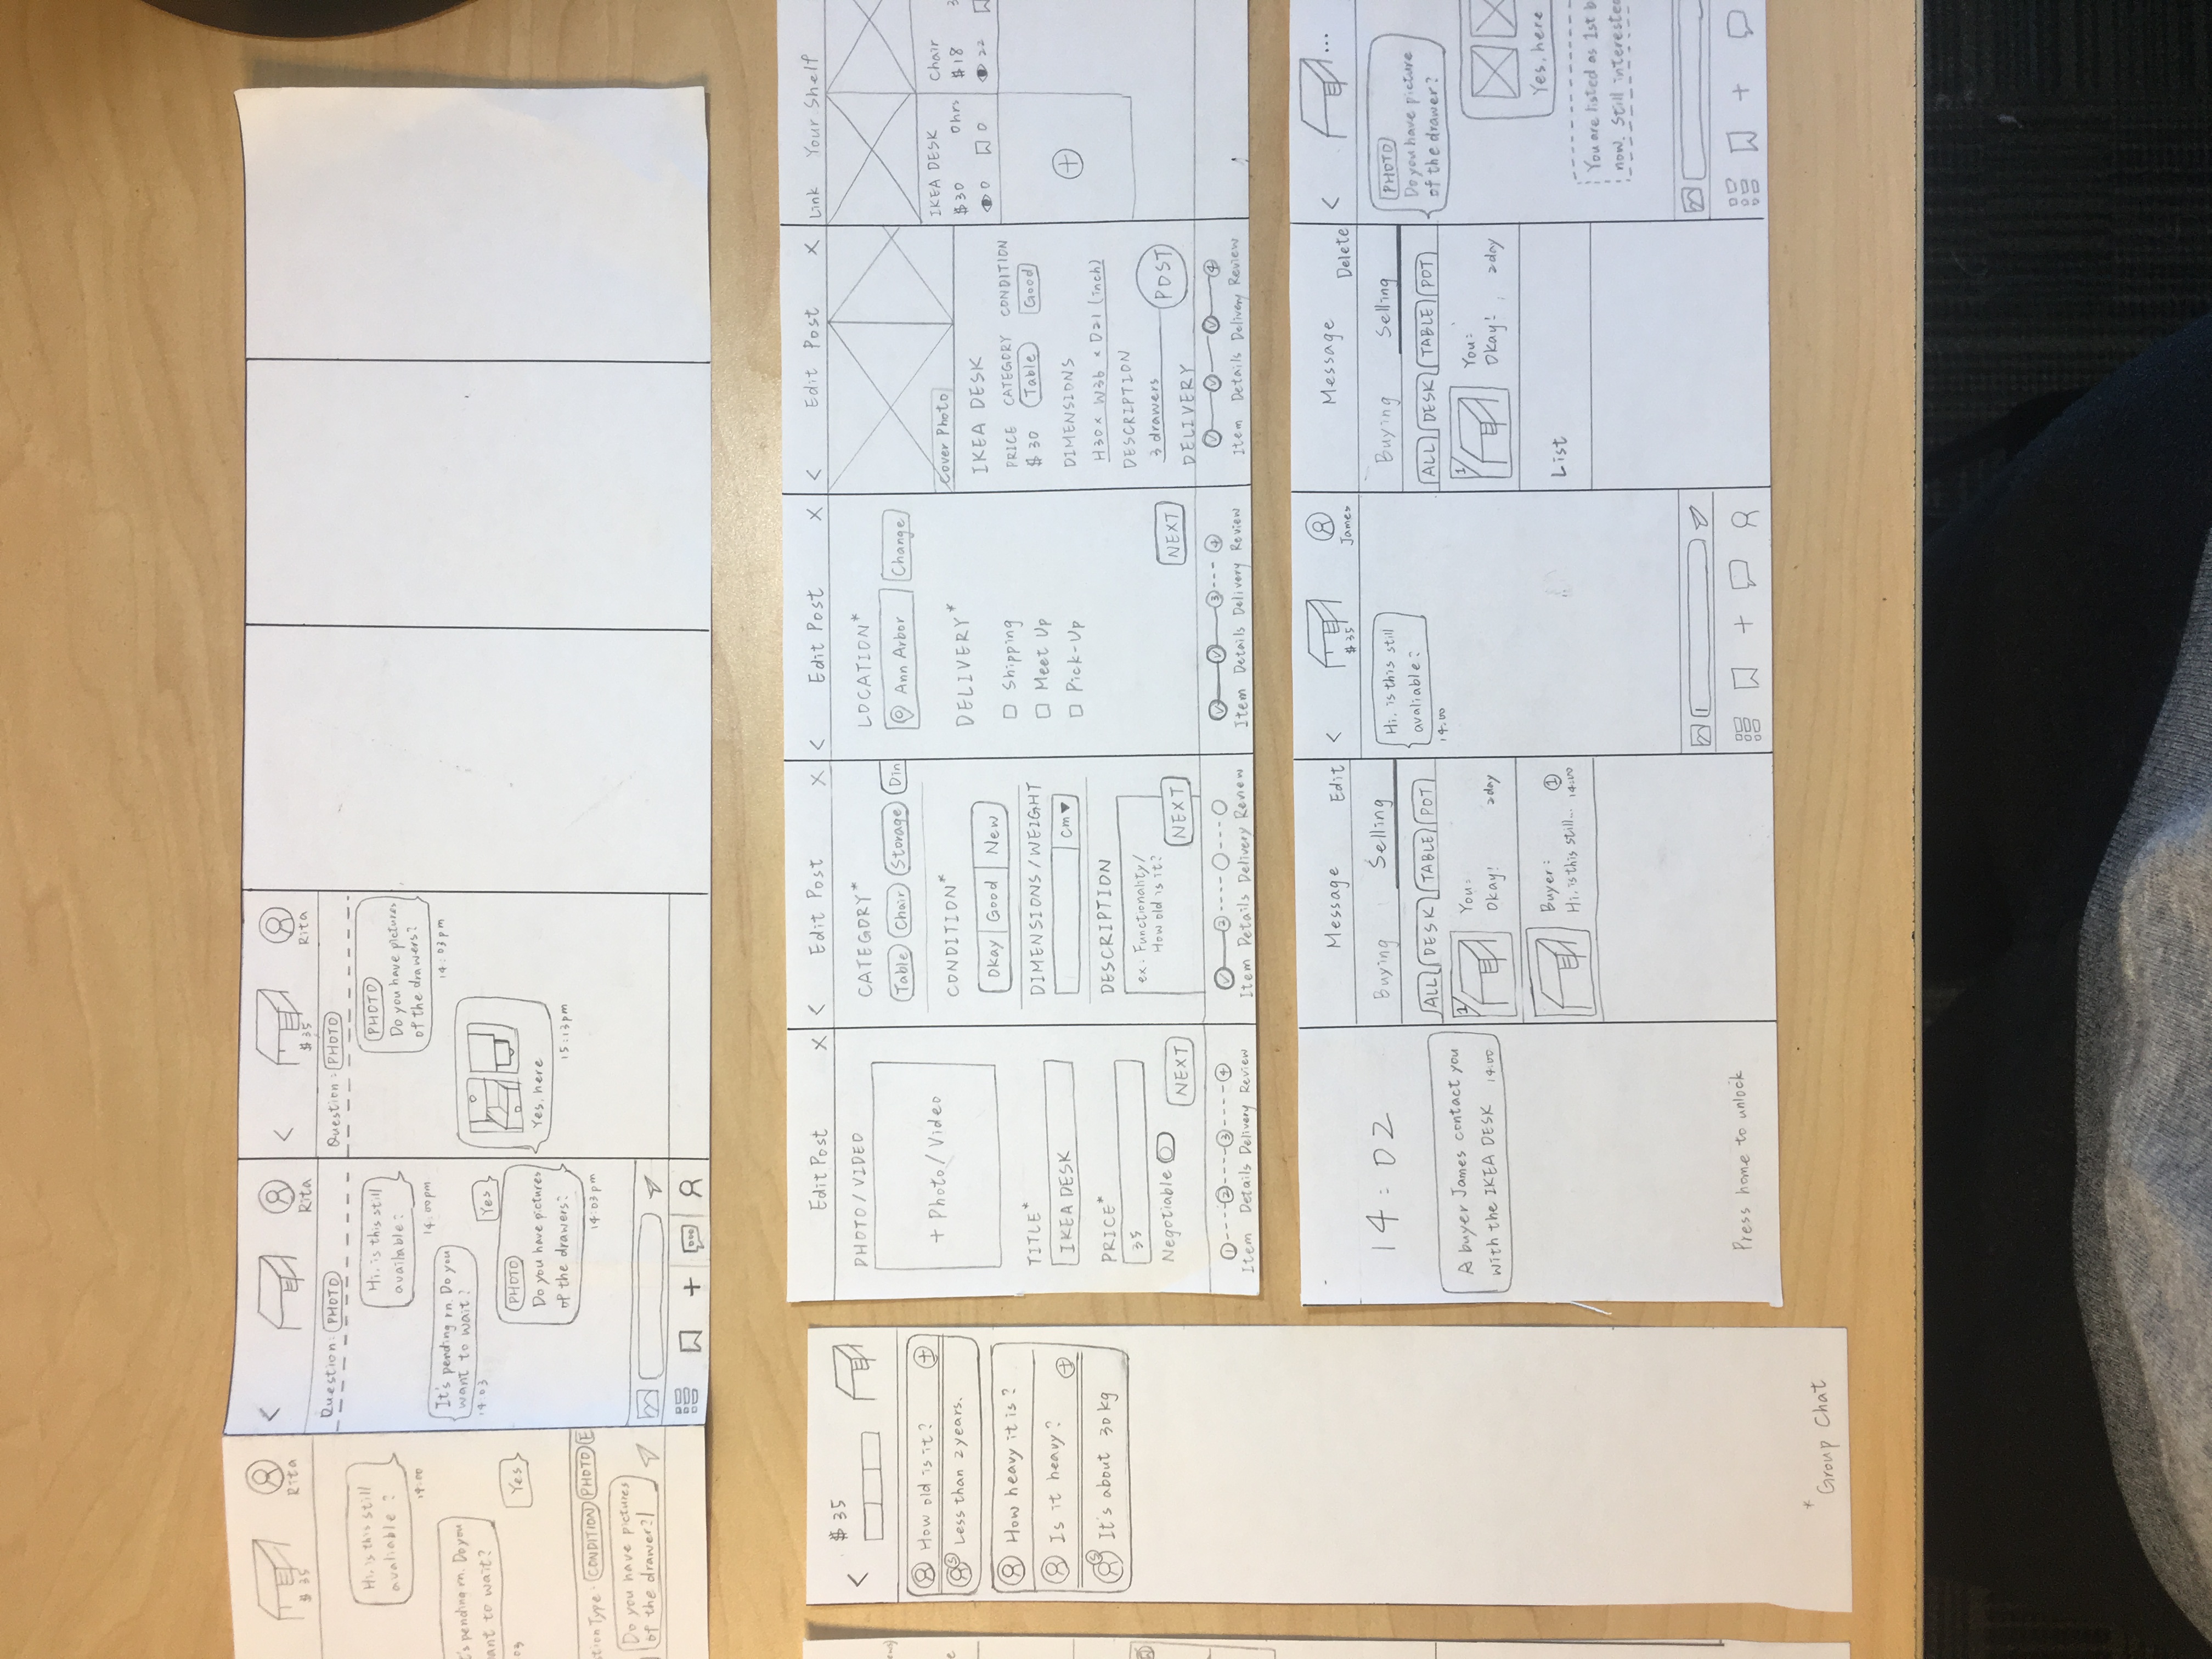 $ 35
Rita
Hi, is this still
avaliable ?
14:00
's pending rn. Do you
ant to wait?
03
Yes
stion Type: CONDITION PHOTO E
Do you have pictures
of the drawer?
Rita
Question: PHOTO
Hi, is this still
available?
14:00pm
It's pending rn. Do you
want to wait?
14:03
Yes
PHOTO
Do you have pictures
of the drawers?
14:03pm
$35
Rita
Question: PHOTO
PHOTO
Do you have pictures
of the drawers?
14:03pm
Yes, here
15:13pm
$ 35
How old is it?
S
Less than 2 years.
How heavy it is?
Is it heavy?
S
It's about 30 kg
* Group Chat
Edit Post X
PHOTO / VIDEO
+ Photo / Video
TITLE*
IKEA DESK
PRICE*
35
Negotiable
NEXT
1 2 3 4
Item Details Delivery Review
< Edit Post X
CATEGORY*
Table Chair Storage Din
CONDITION*
Okay Good New
DIMENSIONS / WEIGHT
cm▼
DESCRIPTION
ex: Functionality/
How old is it?
NEXT
2
Item Details Delivery Review
< Edit Post X
LOCATION*
Ann Arbor Change
DELIVERY*
Shipping
Meet Up
Pick-Up
NEXT
3 4
Item Details Delivery Review
< Edit Post X
Cover Photo
IKEA DESK
PRICE CATEGORY CONDITION
$ 30 Table Good
DIMENSIONS
H30 x W36 x D21 (inch)
DESCRIPTION
3 drawers
POST
DELIVERY
4
Item Details Delivery Review
Link Your Shelf
IKEA DESK
$30 0hrs
0 0
Chair
$18 3
22
14:02
A buyer James contact you
with the IKEA DESK 14:00
Press home to unlock
Message Edit
Buying Selling
ALL DESK TABLE POT
1
You:
Okay! 2day
Buyer: 1
Hi, is this still... 14:00
$35
James
Hi, is this still
avaliable?
14:00
Message Delete
Buying Selling
ALL DESK TABLE POT
1
You:
Okay! 2day
List
...
PHOTO
Do you have picture
of the drawer?
Yes, here
You are listed as 1st b
now. Still interested